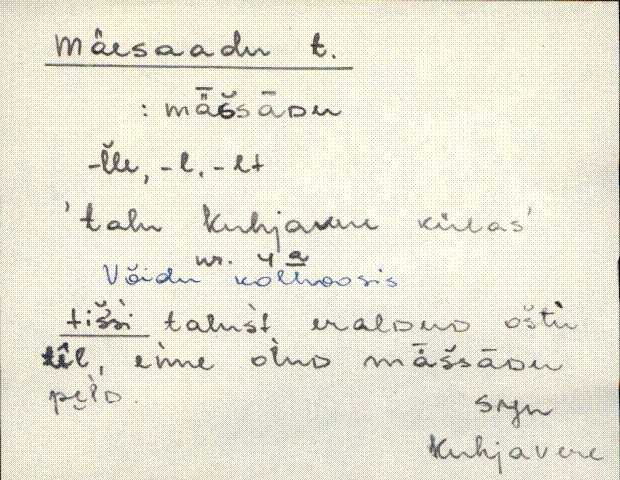 Mäesaadu t.
: mǟšsādu
-l̆le, -l, -lt
'talu Kuhjavere külas'
nr. 4a
Võidu kolhoosis
tišši taluśt eraldud oštu
enne olnud mǟšsādu
SJn
Kuhjavere